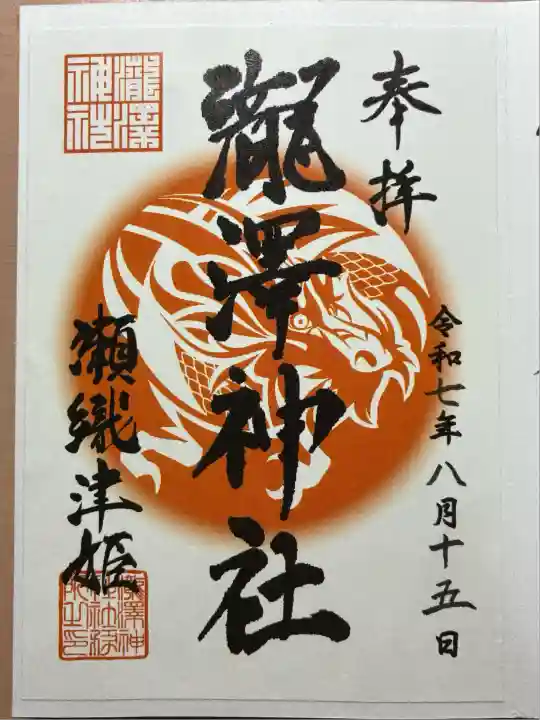 奉拝
令和七年八月十五日
瀧澤神社
瀬織津姫
瀧澤神社
瀧澤神社社務所之印